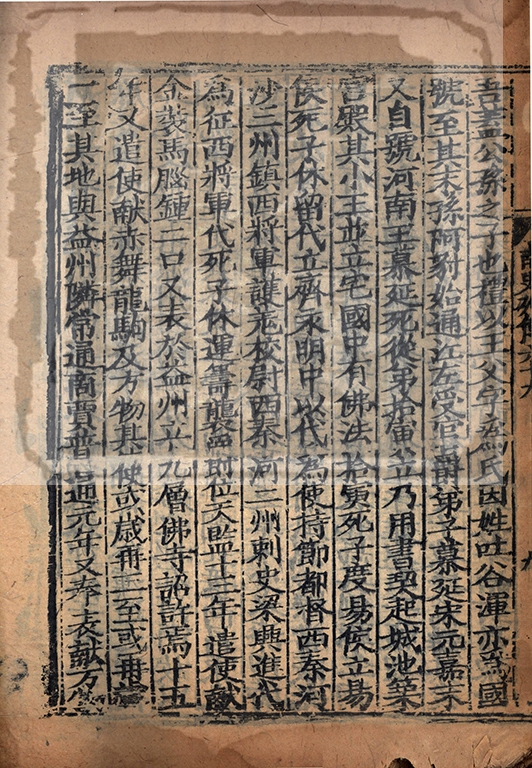 吾蓋公孫之子也禮以王父字爲氏因姓吐谷渾亦爲國
號至其末孫阿豺始通江左受官爵弟子慕延宋元嘉末
又自號河南王慕延死從弟拾寅立乃用書契起城池築
宮殿其小王並立宅國中有佛法拾寅死子度易侯立易
侯死子休留代立齊永明中以代爲使持節都督西秦河
沙三州鎮西將軍護羗校尉西秦河二州刺史梁興進代
爲征西將軍代死子休運籌襲爵位天監十三年遣使獻
金裝馬腦鍾二口又表於益州立九層佛寺詔許焉十五
年又遣使献赤舞龍駒及方物其使或歲再三至或再歲
一至其地與益州隣常通商賈普通元年又奉表獻方